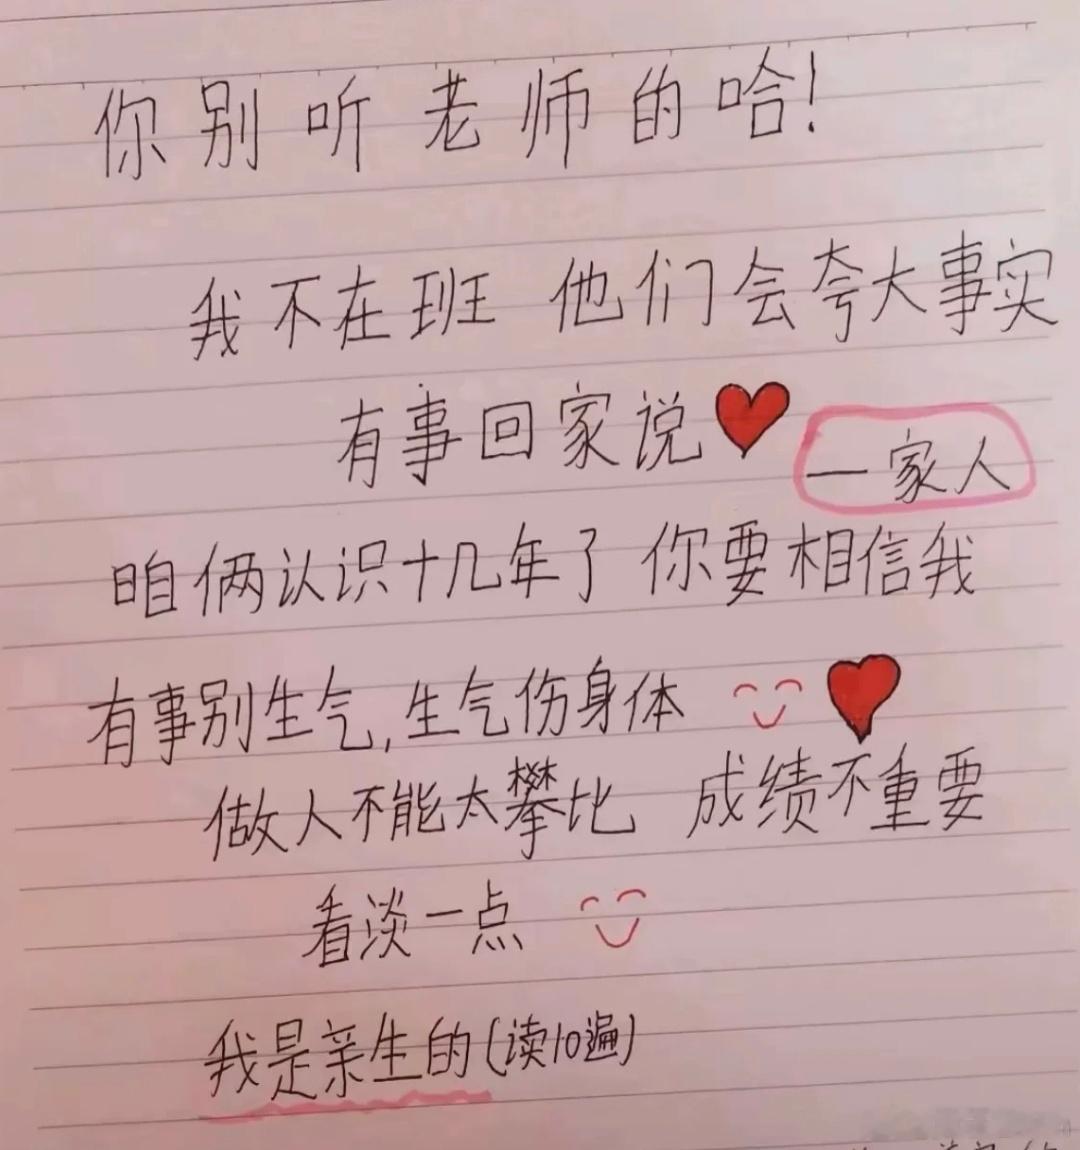 你别听老师的哈!
我不在班 他们会夸大事实
有事回家说
一家人
咱俩认识十几年了 你要相信我
有事别生气,生气伤身体
做人不能太攀比 成绩不重要
看淡一点
我是亲生的(读10遍)